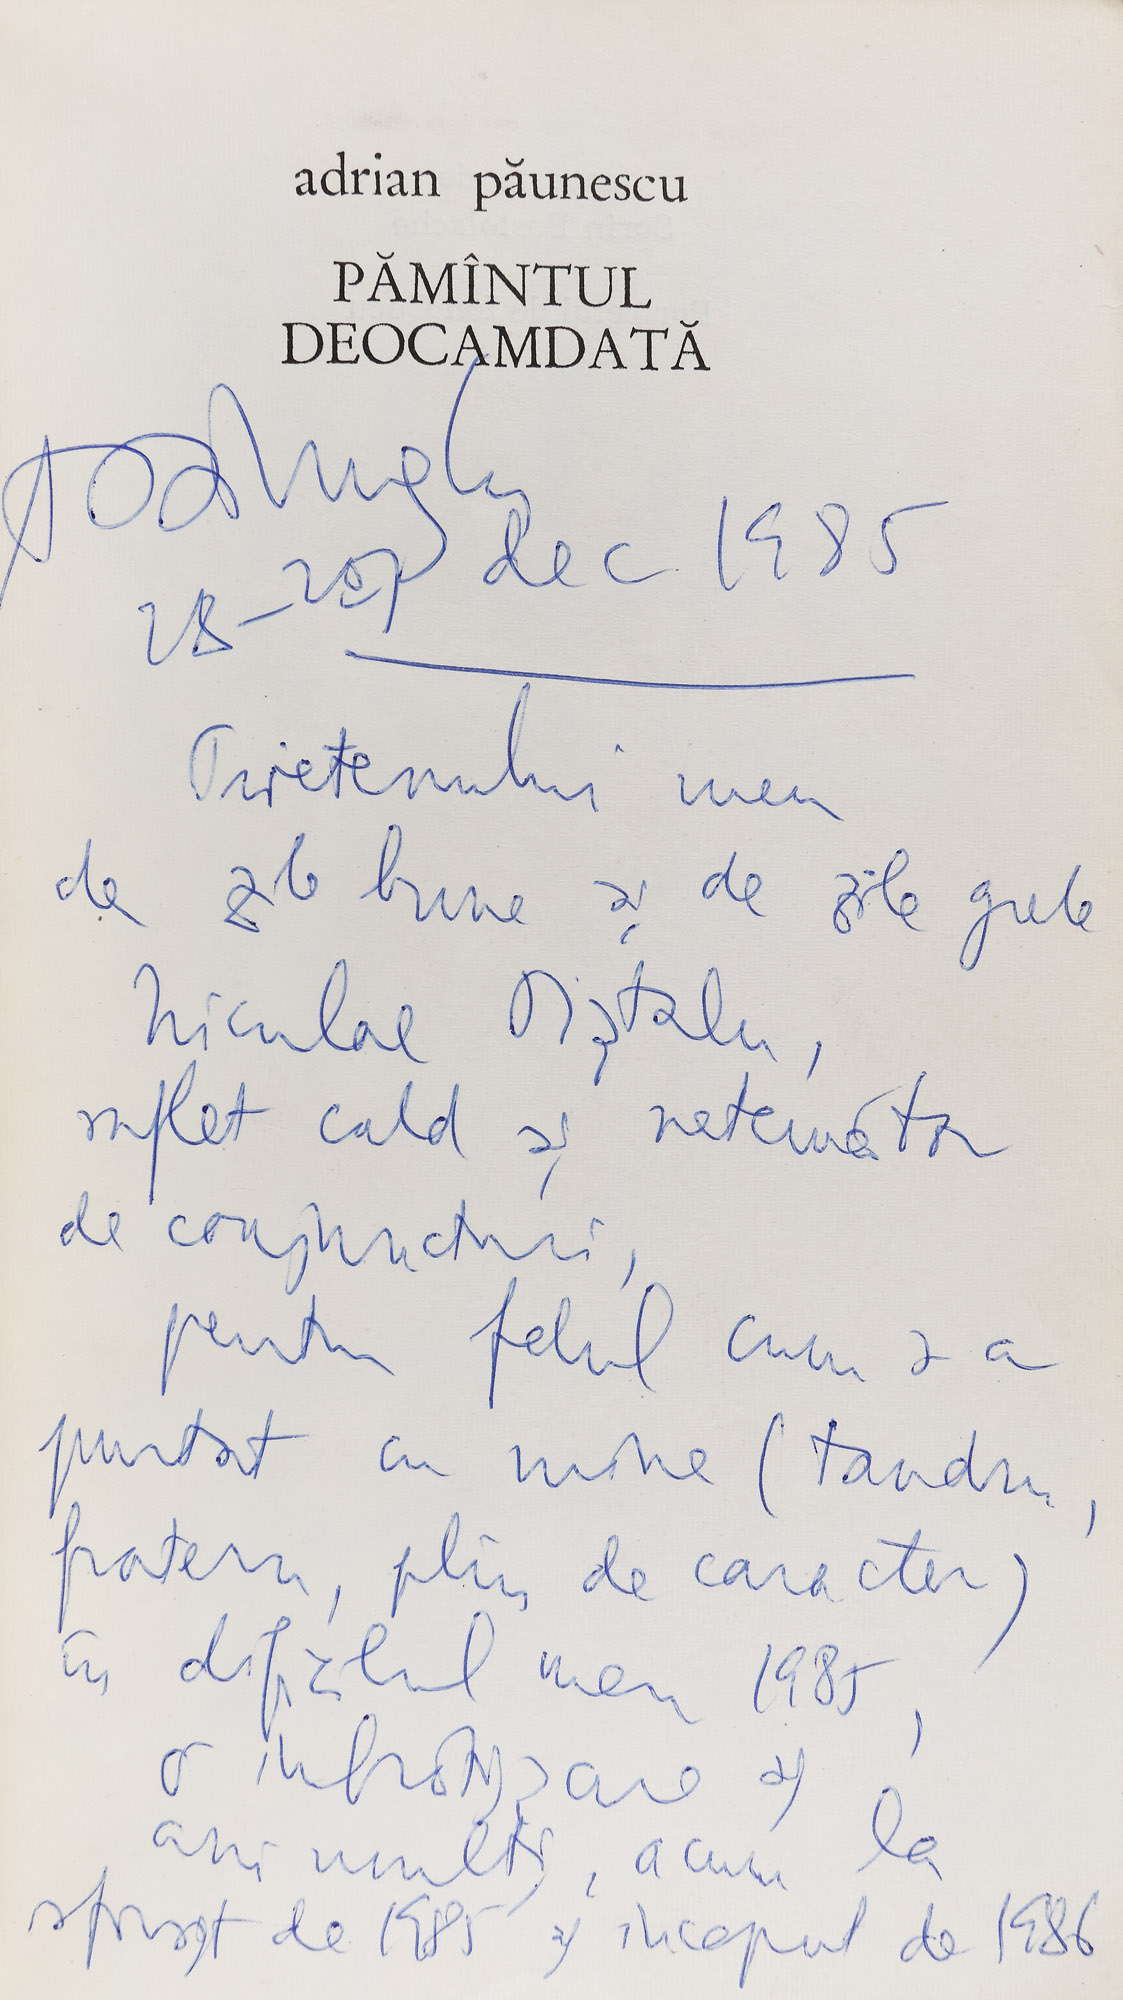 adrian păunescu
PĂMÎNTUL
DEOCAMDATĂ
dec 1985
28-
Prietenului meu
de zile bune și de zile grele
Niculae Oiștalu,
suflet cald și netemător
de conjuncturi,
pentru felul cum s-a
purtat cu mine (tandru,
fratern, plin de caracter)
în dificilul meu 1985,
o îmbrățișare și
ani mulți, acum la
sfîrșit de 1985 și început de 1986